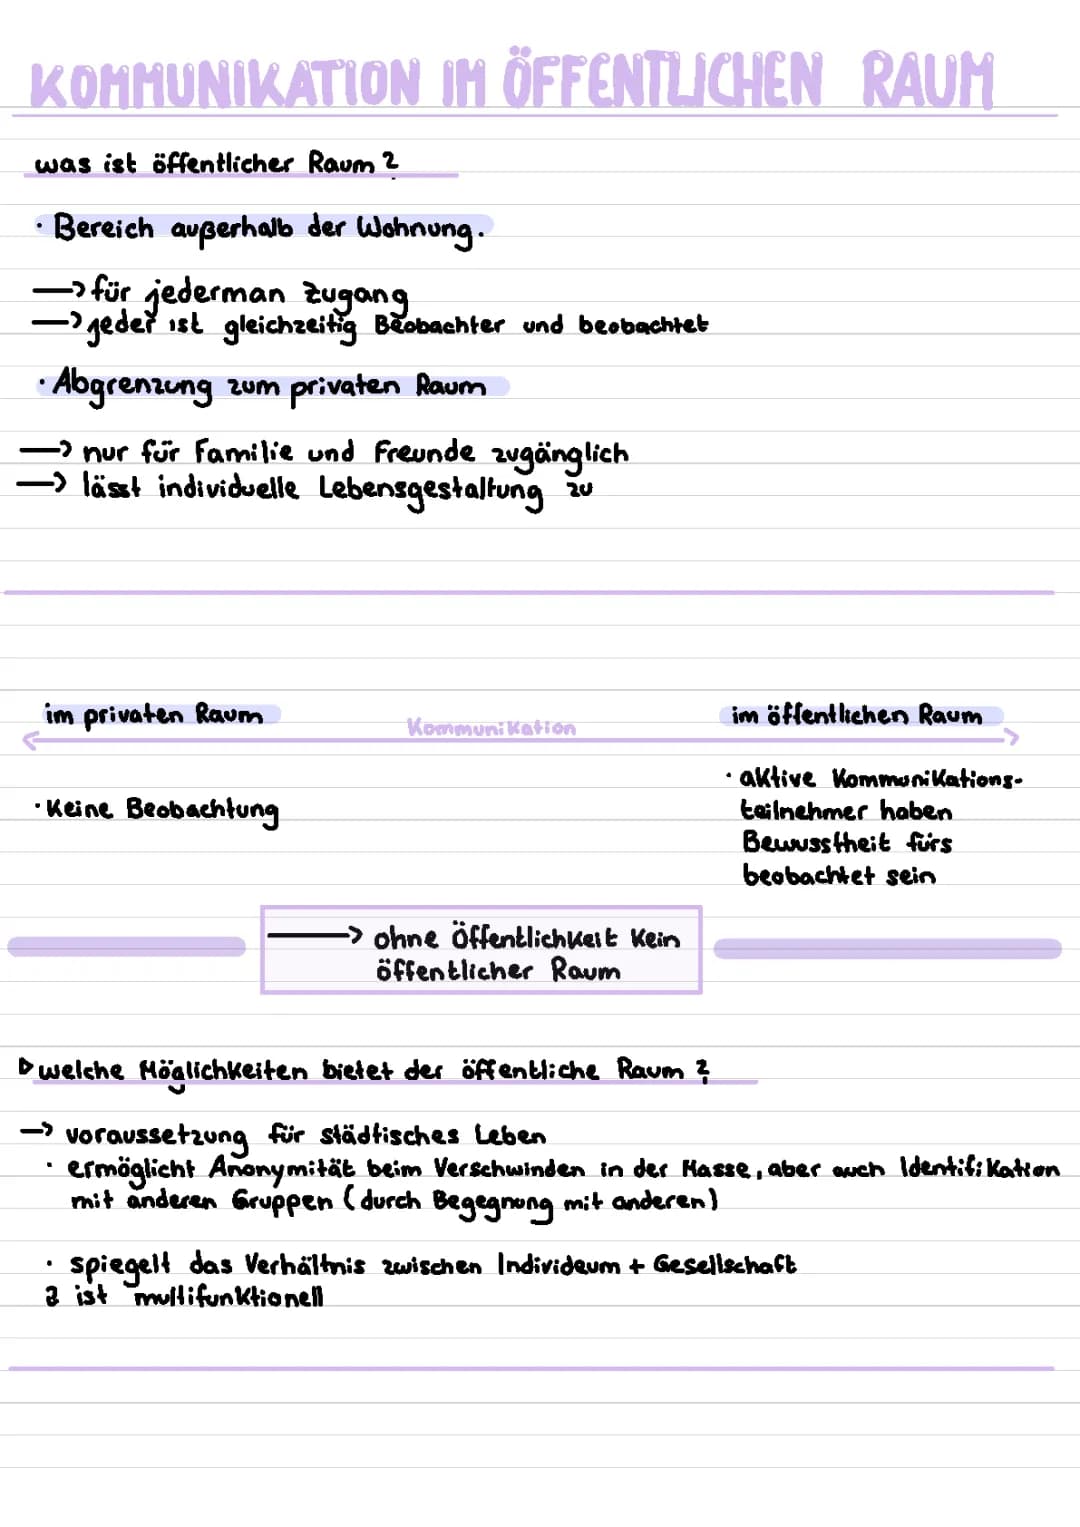 KOMMUNIKATION IM ÖFFENTLICHEN RAUM
was ist öffentlicher Raum?
· Bereich außerhalb der Wohnung.
—> für jederman Zugang
—> jeder ist gleichzeitig Beobachter und beobachtet
· Abgrenzung zum privaten Raum
—> nur für Familie und Freunde zugänglich
—> lässt individuelle Lebensgestaltung zu
im privaten Raum
Kommunikation
im öffentlichen Raum
· Keine Beobachtung
· aktive Kommunikations-
teilnehmer haben
Bewusstheit fürs
beobachtet sein
—> ohne Öffentlichkeit kein
öffentlicher Raum
▷ welche Möglichkeiten bietet der öffentliche Raum?
—> voraussetzung für städtisches Leben
· ermöglicht Anonymität beim Verschwinden in der Masse, aber auch Identifikation
mit anderen Gruppen (durch Begegnung mit anderen)
· spiegelt das Verhältnis zwischen Individeum + Gesellschaft
2 ist multifunktionell